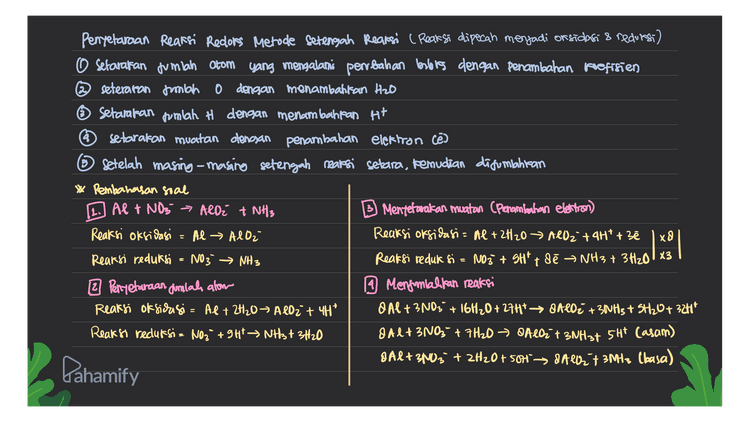 Penyetaraan Reaksi Redoks Metode Setengah Reaksi (Reaksi dipecah menjadi oksidasi & reduksi)
① Setarakan jumlah atom yang mengalami perubahan biloks dengan penambahan koefisien
② setarakan jumlah O dengan menambahkan H₂O
③ Setarakan jumlah H dengan menambahkan H⁺
④ setarakan muatan dengan penambahan elektron (ē)
⑤ Setelah masing-masing setengah reaksi setara, kemudian dijumlahkan
※ Pembahasan soal
1. Al + NO₃⁻ → AlO₂⁻ + NH₃
Reaksi oksidasi = Al → AlO₂⁻
Reaksi reduksi = NO₃⁻ → NH₃
2 Penyetaraan jumlah atom
Reaksi oksidasi = Al + 2H₂O → AlO₂⁻ + 4H⁺
Reaksi reduksi = NO₃⁻ + 9H⁺ → NH₃ + 3H₂O
3 Menyetarakan muatan (Penambahan elektron)
Reaksi oksidasi = Al + 2H₂O → AlO₂⁻ + 4H⁺ + 3ē | x8
Reaksi reduksi = NO₃⁻ + 9H⁺ + 8ē → NH₃ + 3H₂O | x3
4 Menjumlahkan reaksi
8Al + 3NO₃⁻ + 16H₂O + 27H⁺ → 8AlO₂⁻ + 3NH₃ + 9H₂O + 32H⁺
8Al + 3NO₃⁻ + 7H₂O → 8AlO₂⁻ + 3NH₃ + 5H⁺ (asam)
8Al + 3NO₃⁻ + 2H₂O + 5OH⁻ → 8AlO₂⁻ + 3NH₃ (basa)
Pahamify